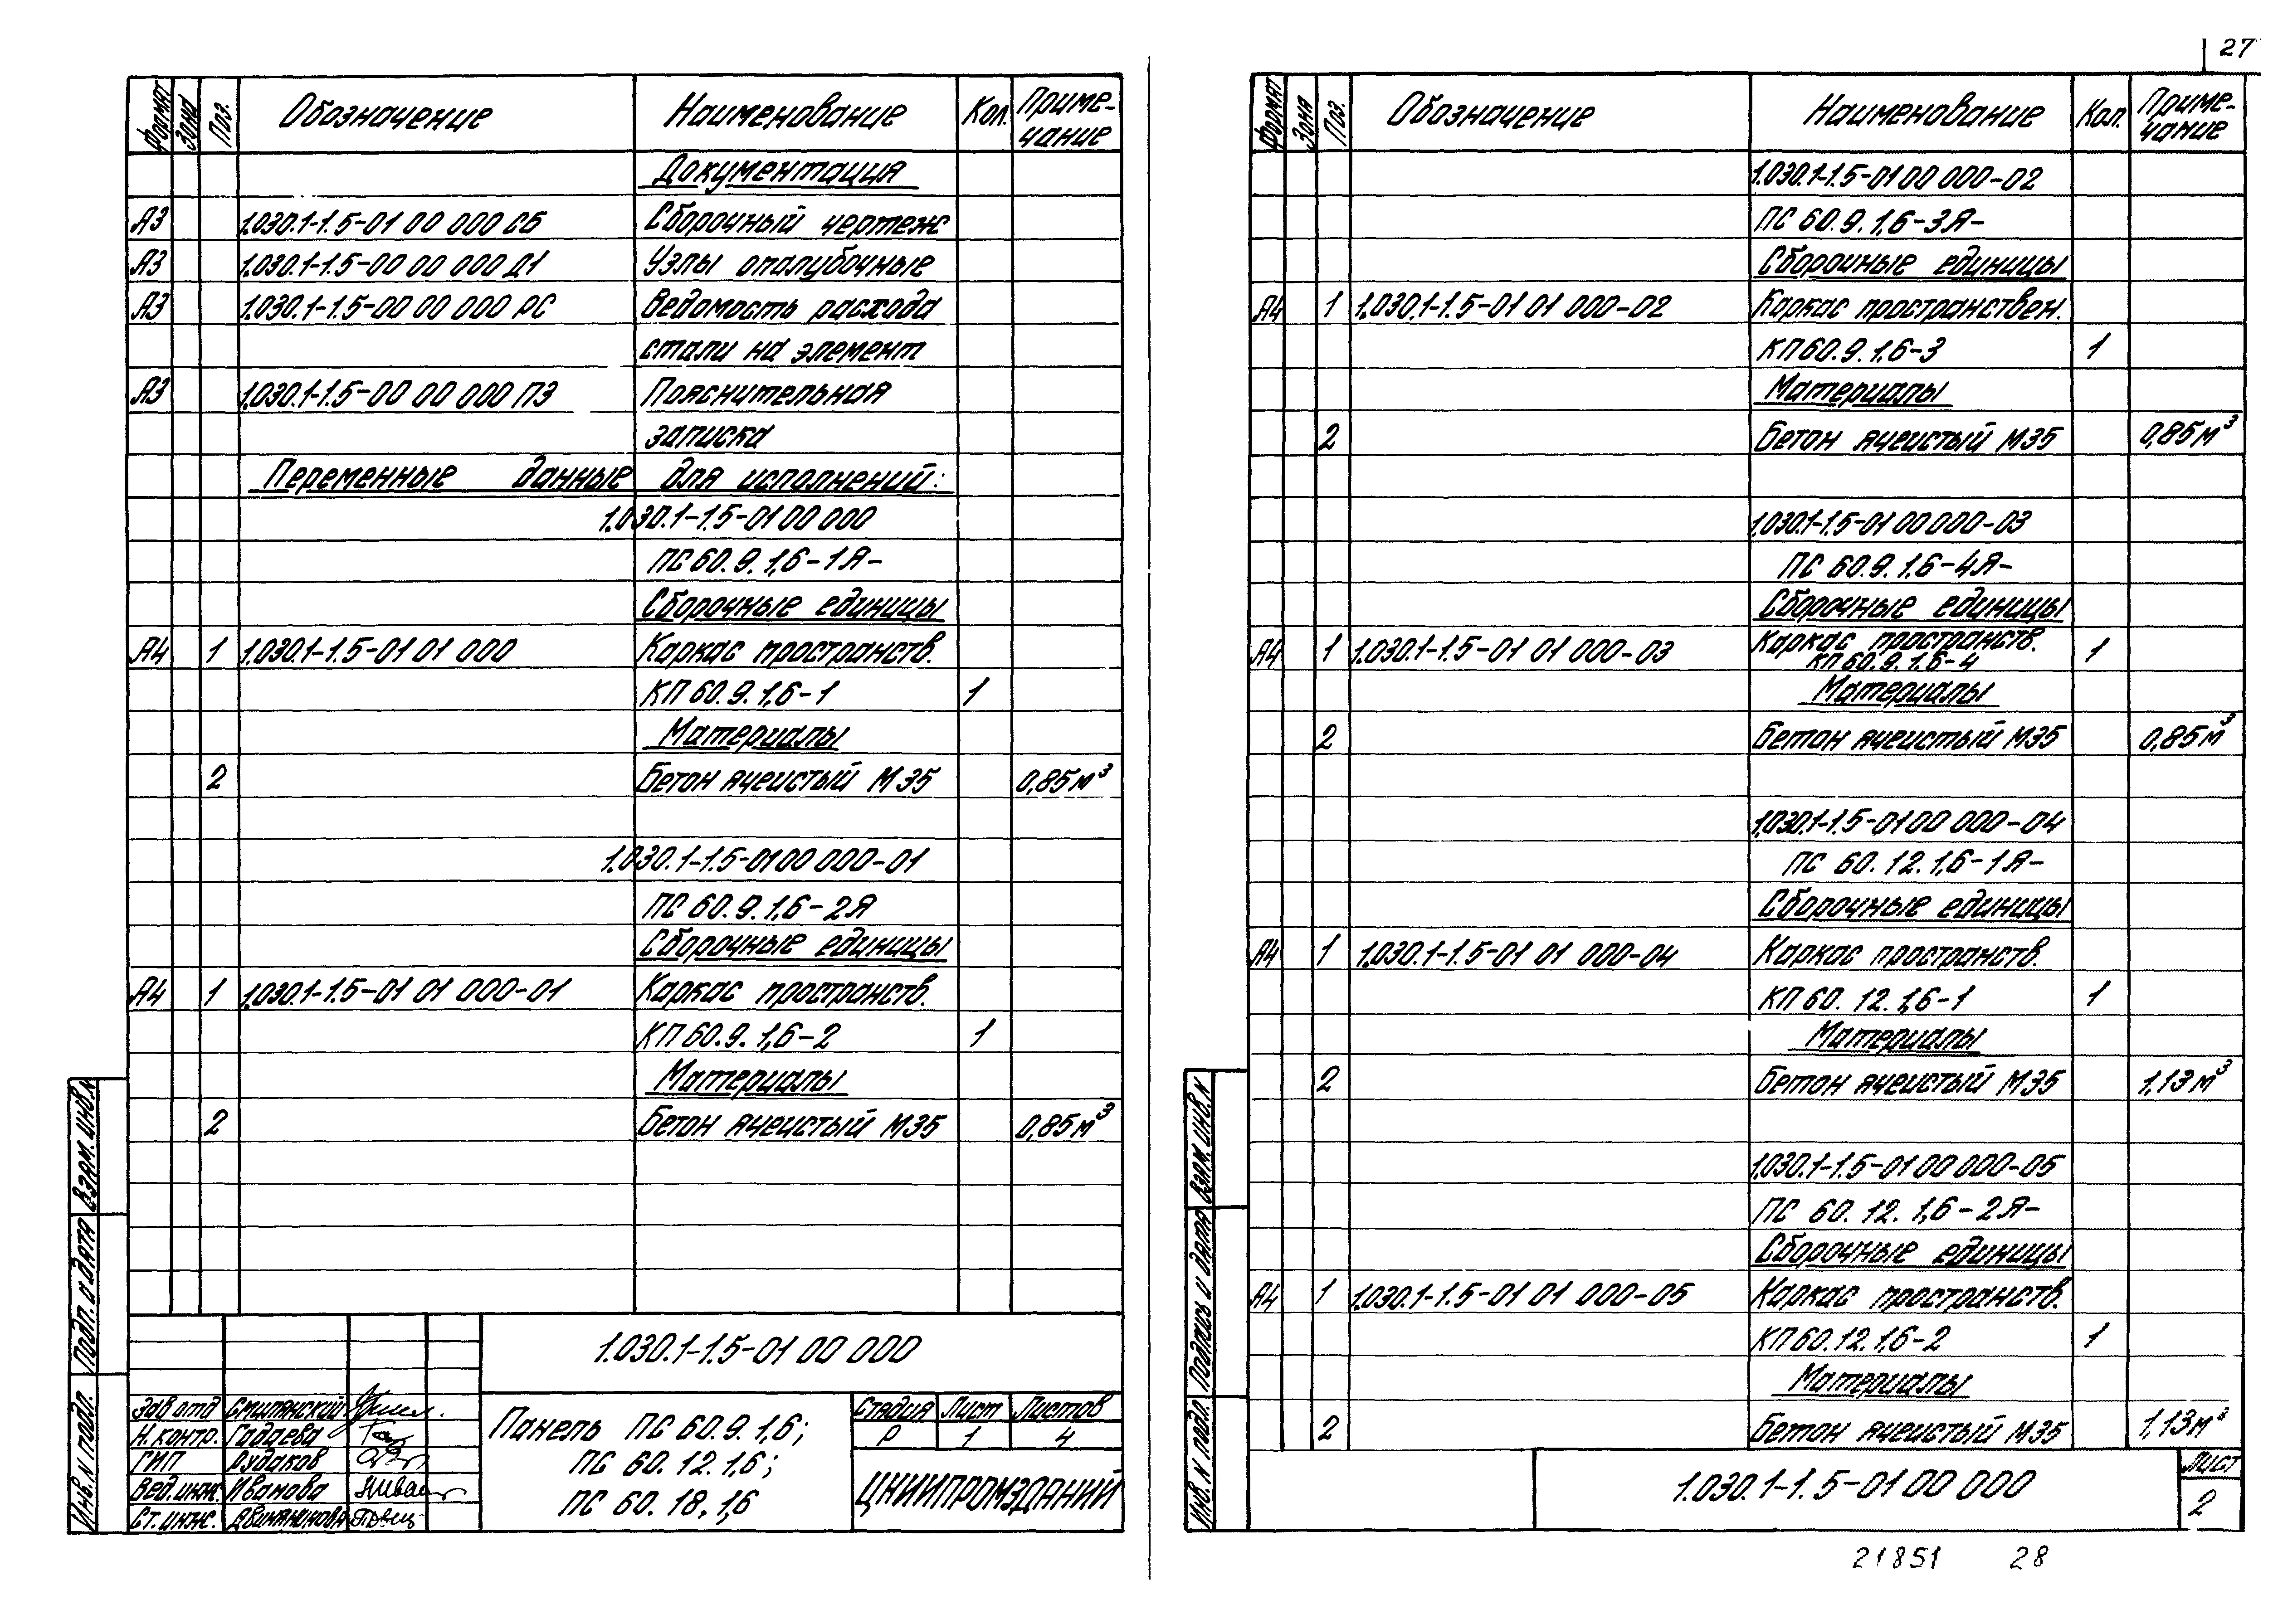 27
Формат Зона Поз. Обозначение Наименование Кол. Приме-
чание
Документация
А3 1.030.1-1.5-01 00 000 СБ Сборочный чертеж
А3 1.030.1-1.5-00 00 000 Д1 Узлы опалубочные
А3 1.030.1-1.5-00 00 000 РС Ведомость расхода
стали на элемент
А3 1.030.1-1.5-00 00 000 ПЗ Пояснительная
записка
Переменные данные для исполнений:
1.030.1-1.5-01 00 000
ПС 60.9.1,6-1Я-
Сборочные единицы
А4 1 1.030.1-1.5-01 01 000 Каркас пространств.
КП 60.9.1,6-1 1
Материалы
2 Бетон ячеистый М35 0,85 м³
1.030.1-1.5-01 00 000-01
ПС 60.9.1,6-2Я
Сборочные единицы
А4 1 1.030.1-1.5-01 01 000-01 Каркас пространств.
КП 60.9.1,6-2 1
Материалы
2 Бетон ячеистый М35 0,85 м³
Взам. инв. N
Подп. и дата
Инв. N подл.
1.030.1-1.5-01 00 000
Зав отд Смилянский
Н. контр. Гадаева
ГИП Рудаков
Вед. инж. Иванова
Ст. инж.
Панель ПС 60.9.1,6;
ПС 60.12.1,6;
ПС 60.18.1,6
Стадия Лист Листов
Р 1 4
ЦНИИПРОМЗДАНИЙ
Формат Зона Поз. Обозначение Наименование Кол. Приме-
чание
1.030.1-1.5-01 00 000-02
ПС 60.9.1,6-3Я-
Сборочные единицы
А4 1 1.030.1-1.5-01 01 000-02 Каркас пространствен.
КП 60.9.1,6-3 1
Материалы
2 Бетон ячеистый М35 0,85 м³
1.030.1-1.5-01 00 000-03
ПС 60.9.1,6-4Я-
Сборочные единицы
А4 1 1.030.1-1.5-01 01 000-03 Каркас пространств. 1
КП 60.9.1,6-4
Материалы
2 Бетон ячеистый М35 0,85 м³
1.030.1-1.5-01 00 000-04
ПС 60.12.1,6-1Я-
Сборочные единицы
А4 1 1.030.1-1.5-01 01 000-04 Каркас пространств.
КП 60.12.1,6-1 1
Материалы
2 Бетон ячеистый М35 1,13 м³
1.030.1-1.5-01 00 000-05
ПС 60.12.1,6-2Я-
Сборочные единицы
А4 1 1.030.1-1.5-01 01 000-05 Каркас пространств.
КП 60.12.1,6-2 1
Материалы
2 Бетон ячеистый М35 1,13 м³
Взам. инв. N
Подпись и дата
Инв. N подл.
1.030.1-1.5-01 00 000
Лист
2
21851 28